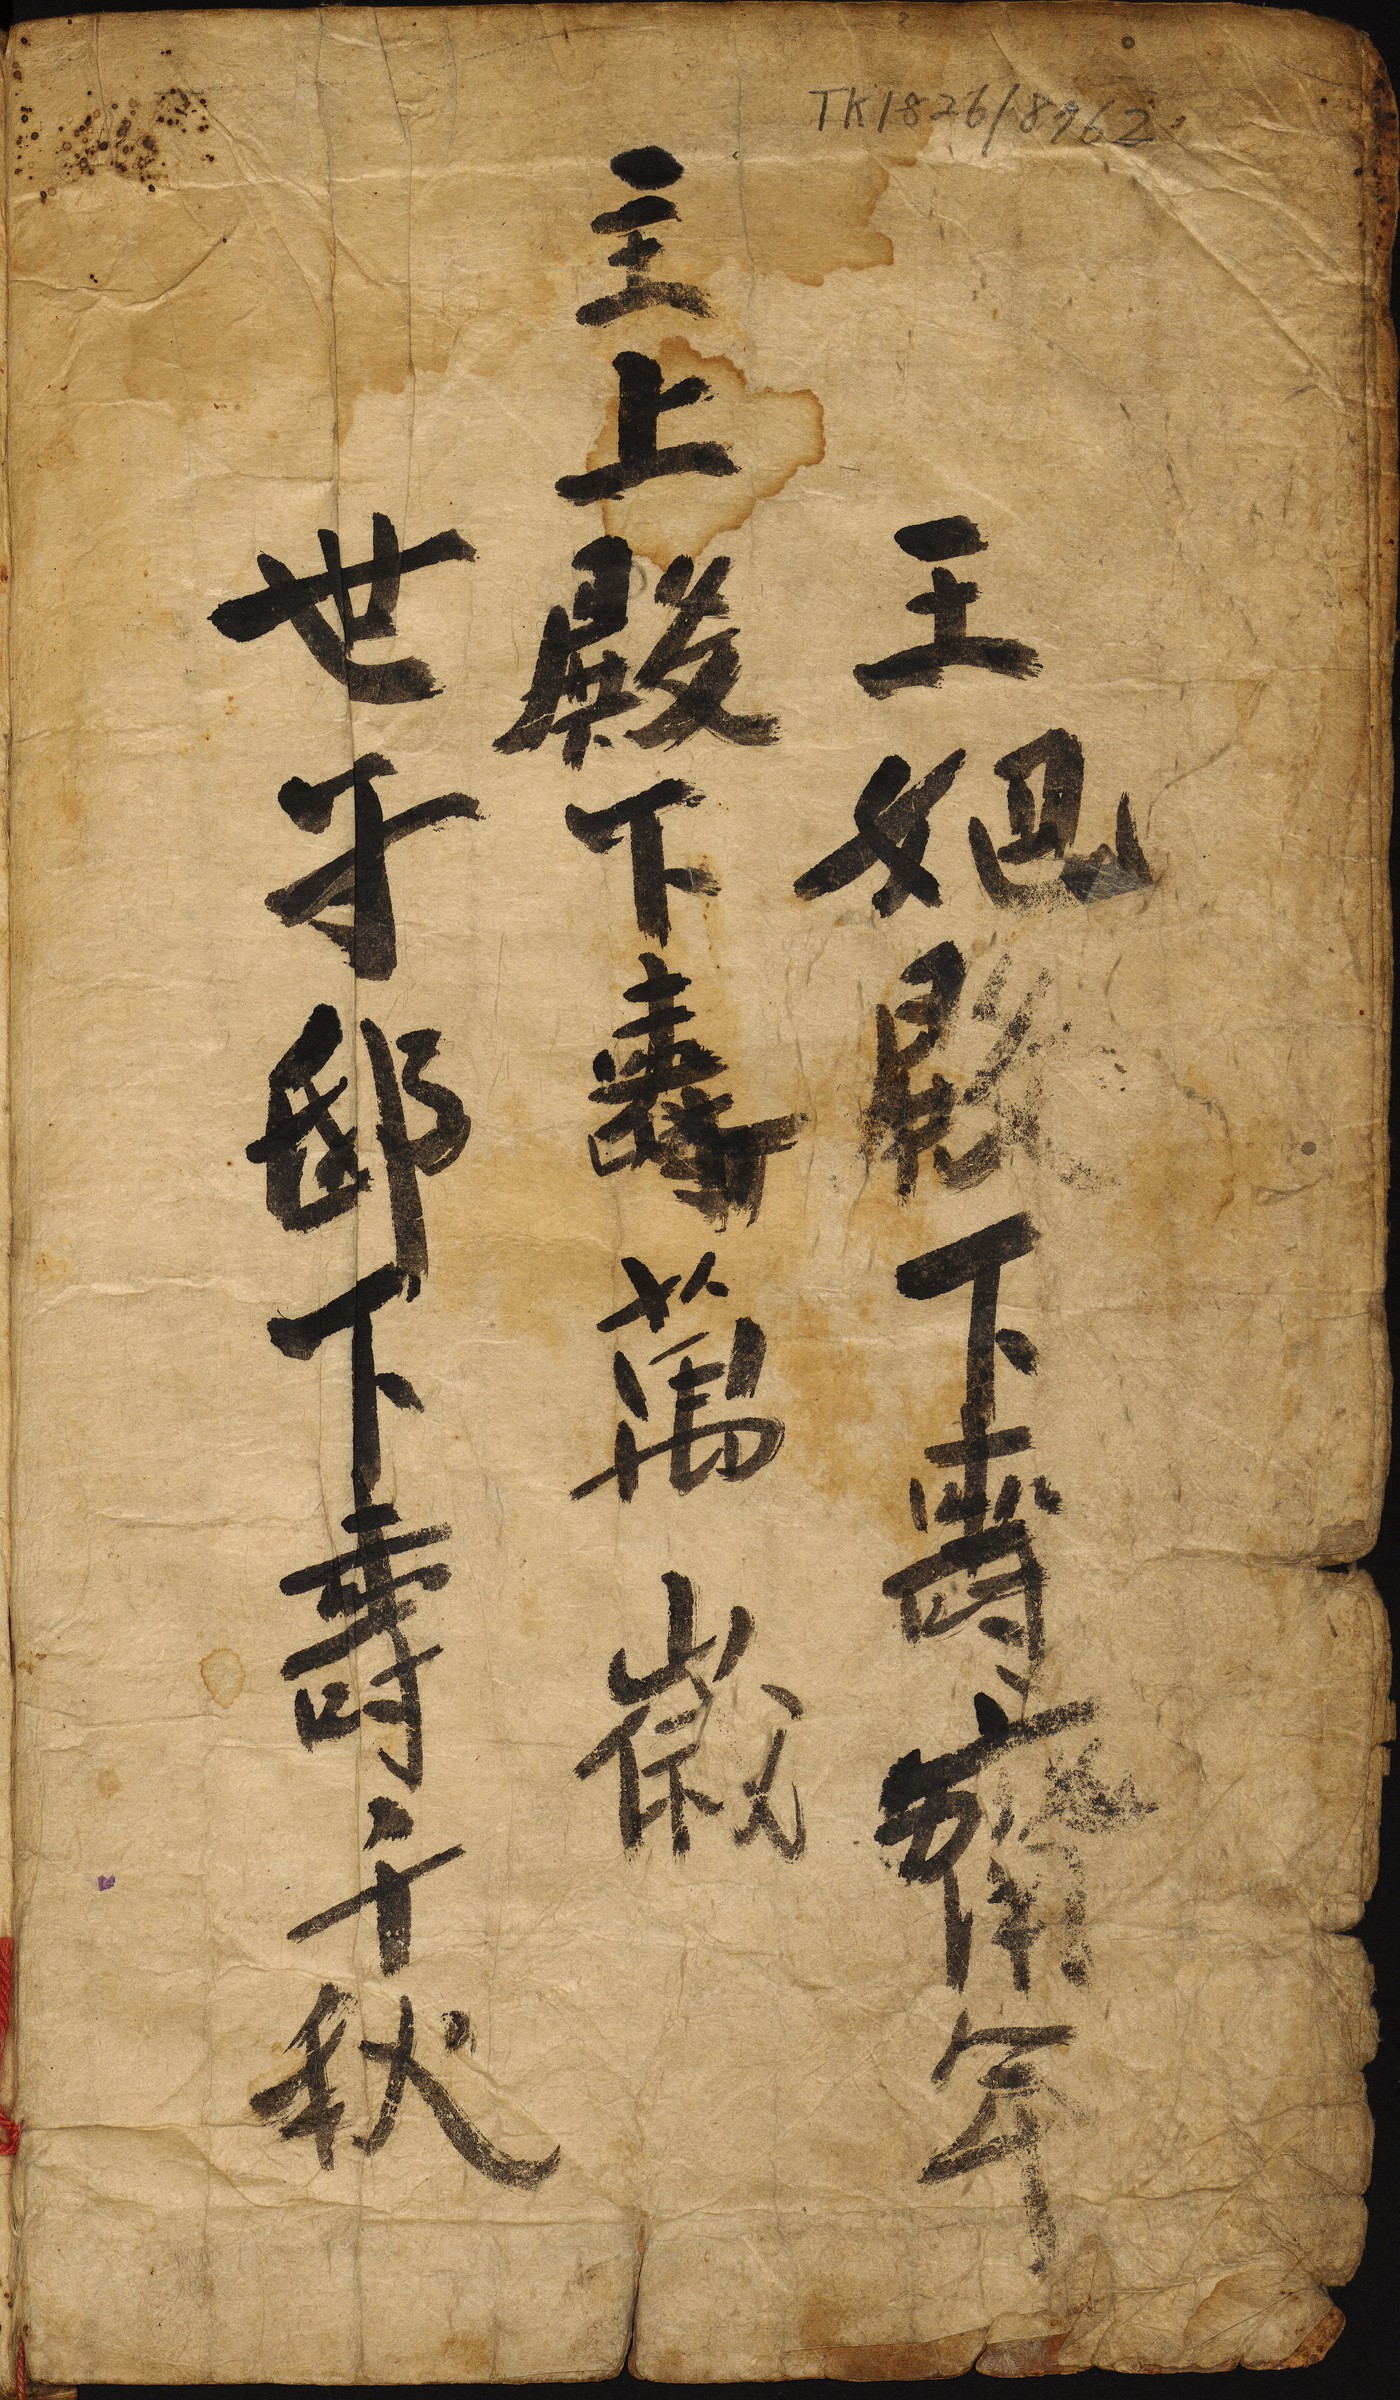 TK1826/8962
王妃殿下壽齊年
主上殿下壽萬歲
世子邸下壽千秋